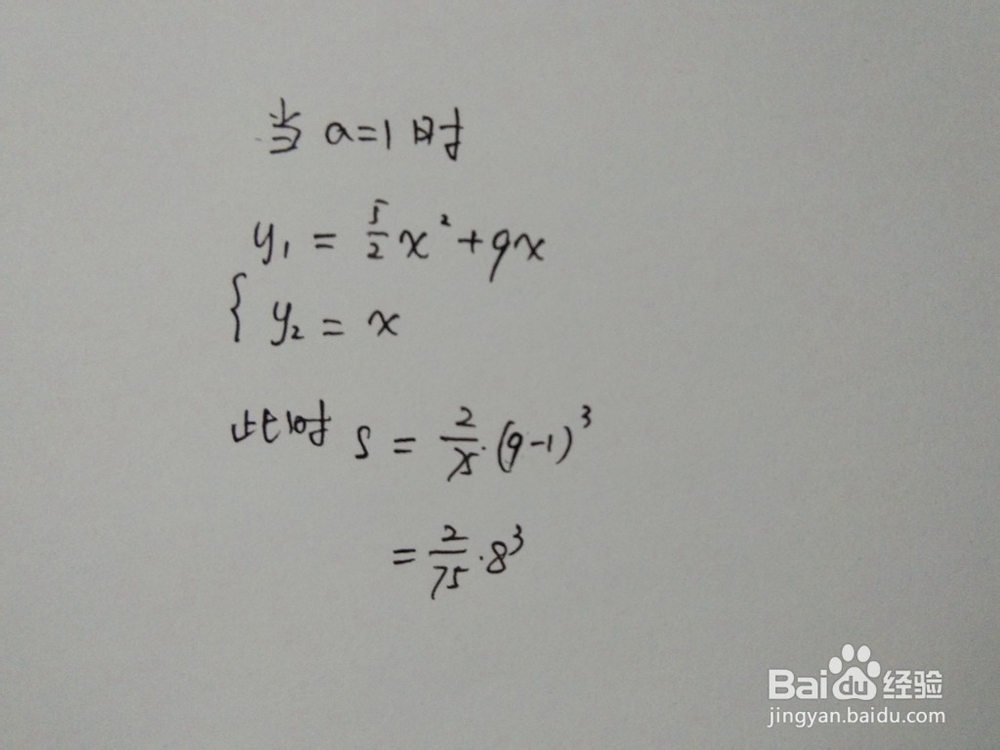 当 a=1 时
y₁ = 5/2 x² + 9x
{ y₂ = x
此时 S = 2/75 · (9-1)³
= 2/75 · 8³
Baidu 经验
jingyan.baidu.com